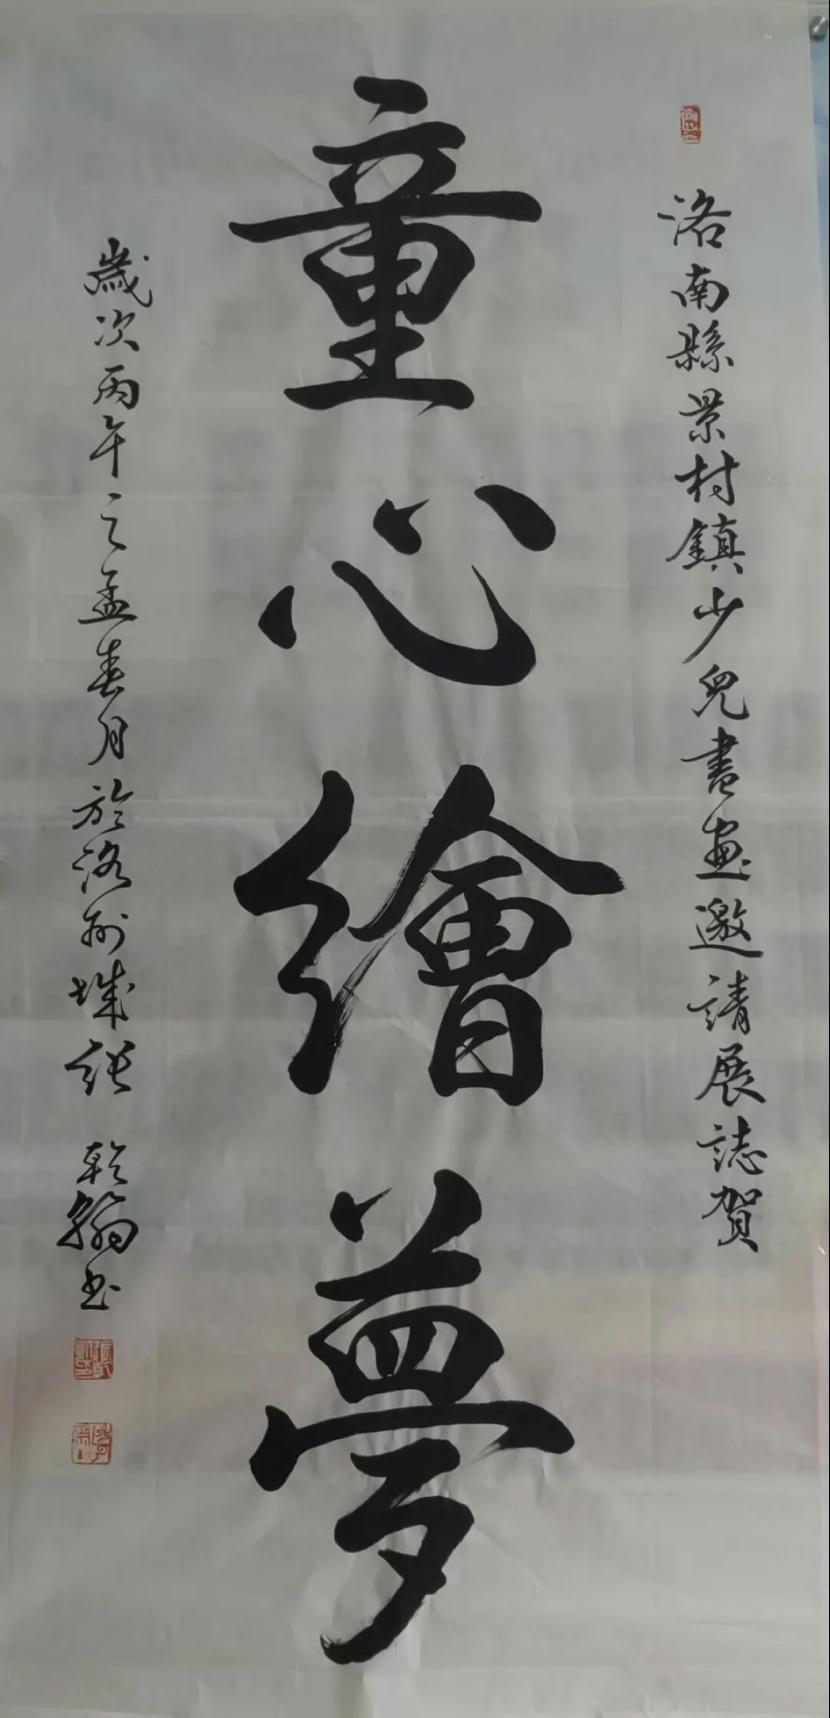 洛南縣景村鎮少兒書畫邀請展誌賀
童心繪夢
歲次丙午之孟春月於洛州城張乾翰書